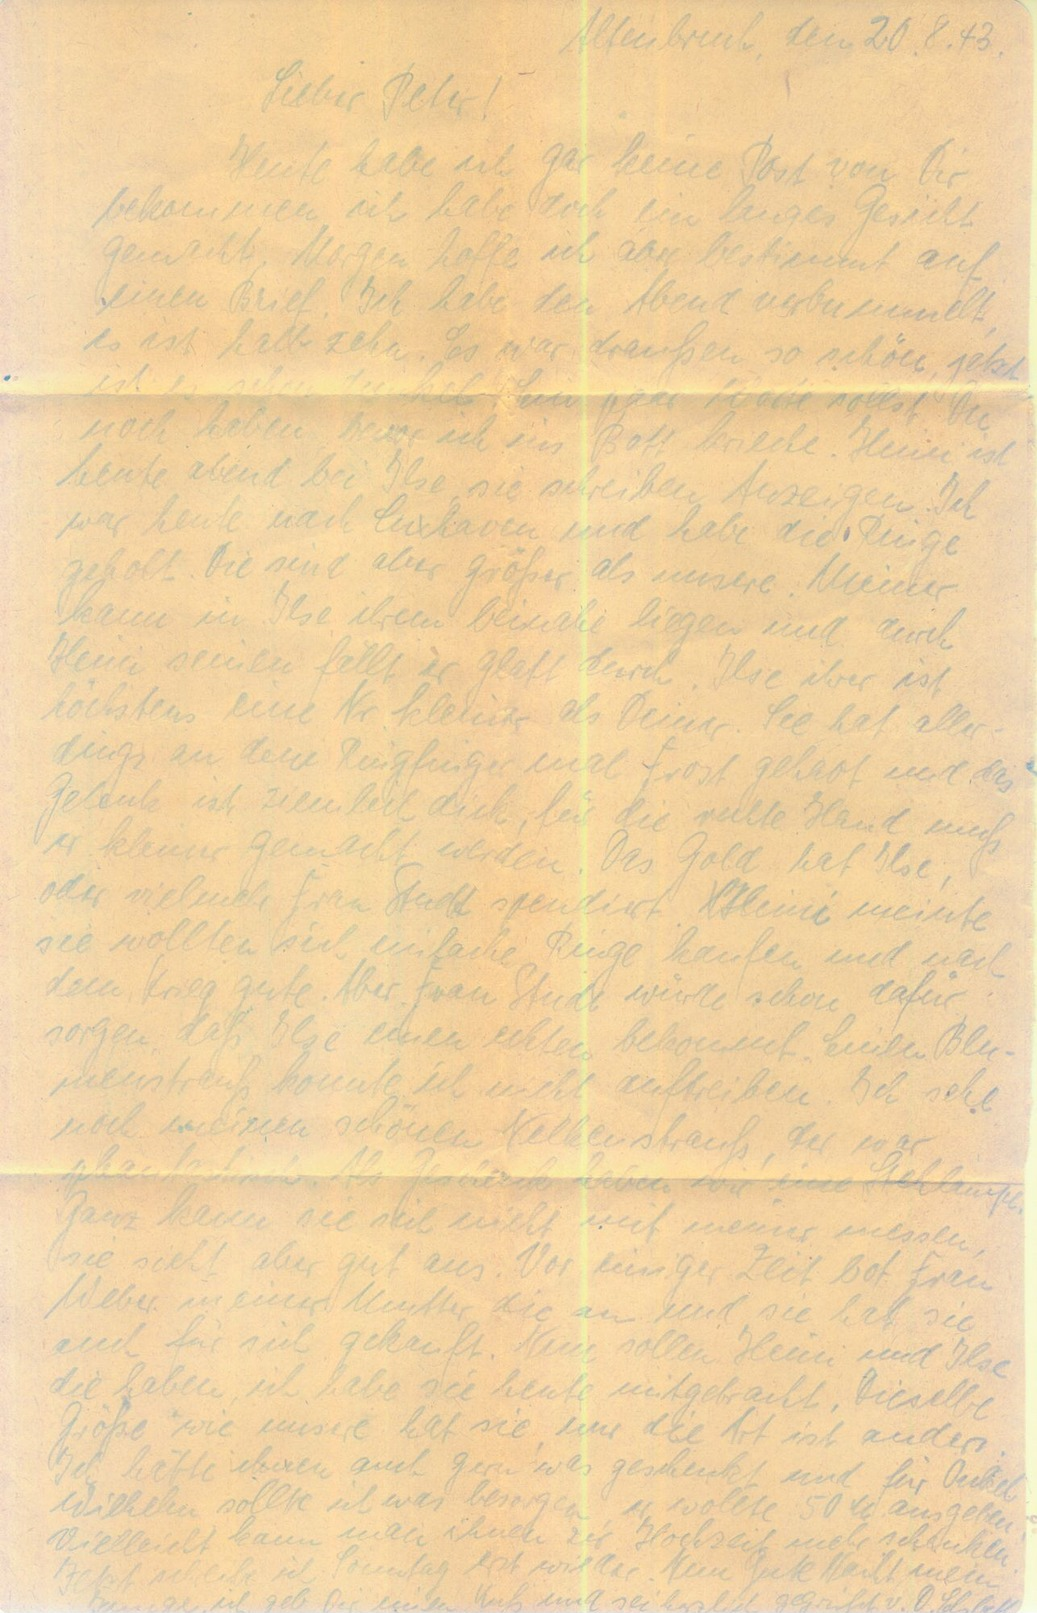 Altenbruch, den 20.8.43.
Lieber Peter!
Heute habe ich gar keine Post von Dir
bekommen ich habe doch ein langes Gesicht
gemacht. Morgen hoffe ich aber bestimmt auf
einen Brief. Ich habe den Abend verbummelt,
es ist halb zehn. Es war draußen so schön, jetzt
ist es schon dunkel. Ein paar Worte sollst Du
noch haben bevor ich ins Bett krieche. Heini ist
heute abend bei Ilse, sie schreiben Anzeigen. Ich
war heute nach Cuxhaven und habe die Ringe
geholt. Die sind aber größer als unsere. Meiner
kann in Ilse ihrem beinahe liegen und durch
Heini seinen fällt er glatt durch. Ilse ihrer ist
höchstens eine Nr. kleiner als Deiner. Sie hat aller-
dings an dem Ringfinger mal Frost gehabt und das
Gelenk ist ziemlich dick, für die rechte Hand muß
er kleiner gemacht werden. Das Gold hat Ilse,
oder vielmehr Frau spendiert. Heini meinte
sie wollten sich einfache Ringe kaufen und nach
dem Krieg gute. Aber Frau würde schon dafür
sorgen, daß Ilse einen echten bekommt. Einen Blu-
menstrauß konnte ich nicht auftreiben. Ich sehe
noch meinen schönen Nelkenstrauß, der war
phantastisch. Als Geschenk haben wir eine Stehlampe.
Ganz kann sie sich nicht mit meiner messen,
sie sieht aber gut aus. Vor einiger Zeit bot Frau
Weber meiner Mutter die an und sie hat sie
auch für sich gekauft. Nun sollen Heini und Ilse
die haben, ich habe sie heute mitgebracht. Dieselbe
Größe wie unsere hat sie nur die Art ist anders.
Ich hätte ihnen auch gern was geschenkt und für Onkel
Wilhelm sollte ich was besorgen er wollte 50 M ausgeben.
Vielleicht kann man ihnen zur Hochzeit mehr schenken.
Jetzt schreibe ich Sonntag erst wieder. Nun Gute Nacht mein
Junge, ich geb Dir einen Kuß und sei herzlich gegrüßt v. D.